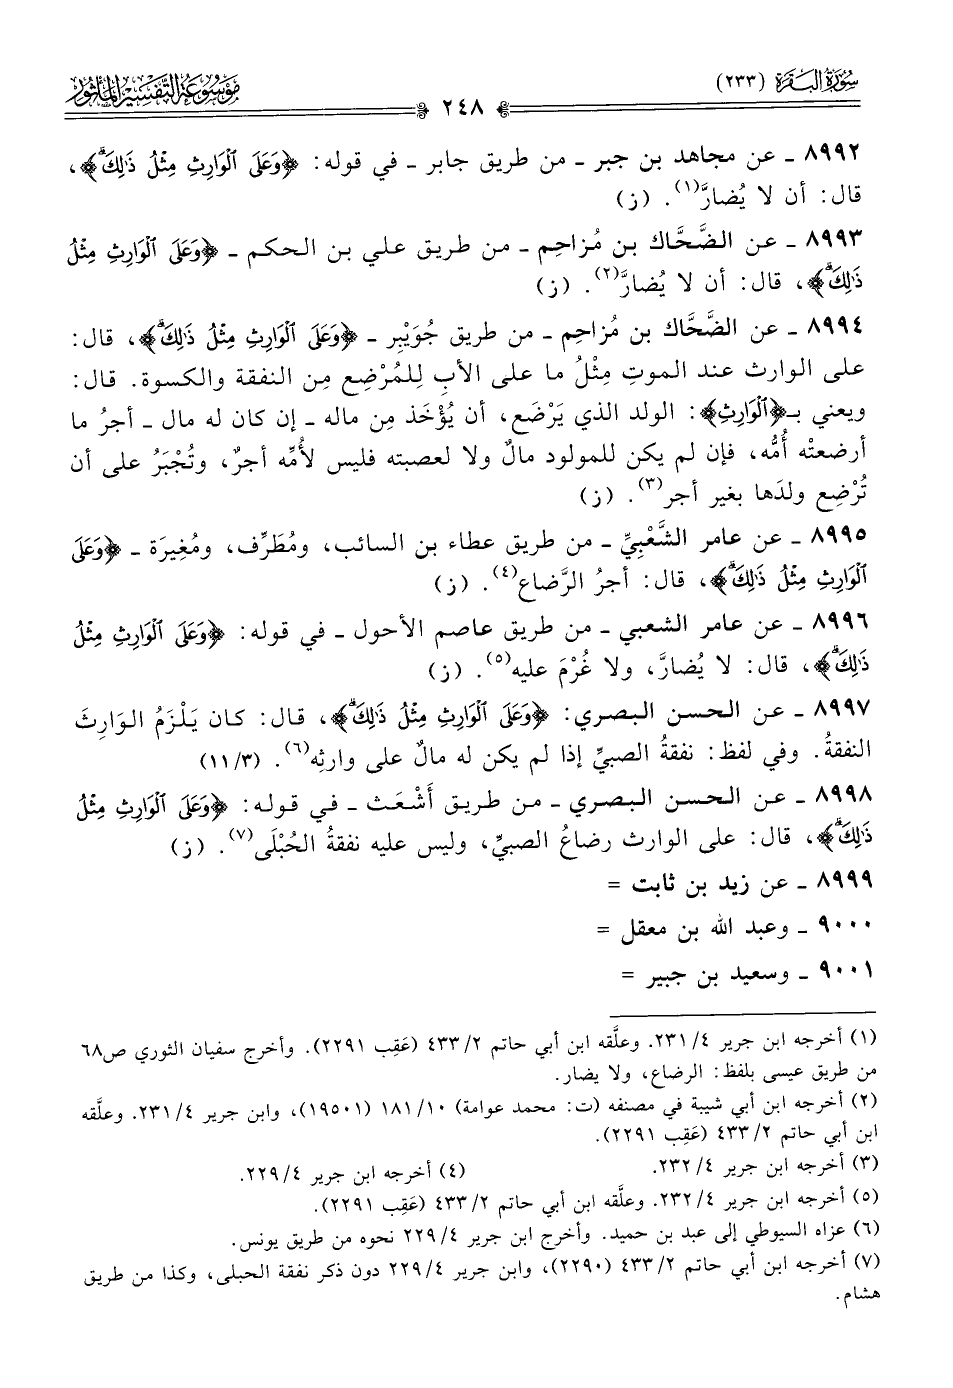 سُورَةُ البَقَرَة (٢٣٣)
٢٤٨
مَوْسُوعَةُ التَّفْسِيرِ المَأْثُور
٨٩٩٢ ـ عن مجاهد بن جبر ـ من طريق جابر ـ في قوله: ﴿وَعَلَى ٱلْوَارِثِ مِثْلُ ذَٰلِكَۗ﴾،
قال: أن لا يُضارَّ(١). (ز)
٨٩٩٣ ـ عن الضَّحَّاك بن مُزاحِم ـ من طريق علي بن الحكم ـ ﴿وَعَلَى ٱلْوَارِثِ مِثْلُ
ذَٰلِكَۗ﴾، قال: أن لا يُضارَّ(٢). (ز)
٨٩٩٤ ـ عن الضَّحَّاك بن مُزاحِم ـ من طريق جُوَيْبِر ـ ﴿وَعَلَى ٱلْوَارِثِ مِثْلُ ذَٰلِكَۗ﴾، قال:
على الوارث عند الموتِ مِثْلُ ما على الأبِ لِلمُرْضِع مِن النفقة والكسوة. قال:
ويعني بـ﴿ٱلْوَارِثِ﴾: الولد الذي يَرْضَع، أن يُؤْخَذ مِن ماله ـ إن كان له مال ـ أجرُ ما
أرضعتْه أُمُّه، فإن لم يكن للمولود مالٌ ولا لعصبته فليس لأُمِّه أجرٌ، وتُجْبَرُ على أن
تُرْضِع ولدَها بغير أجر(٣). (ز)
٨٩٩٥ ـ عن عامر الشَّعْبِيِّ ـ من طريق عطاء بن السائب، ومُطَرِّف، ومُغِيرَة ـ ﴿وَعَلَى
ٱلْوَارِثِ مِثْلُ ذَٰلِكَۗ﴾، قال: أجرُ الرَّضاع(٤). (ز)
٨٩٩٦ ـ عن عامر الشعبي ـ من طريق عاصم الأحول ـ في قوله: ﴿وَعَلَى ٱلْوَارِثِ مِثْلُ
ذَٰلِكَۗ﴾، قال: لا يُضارَّ، ولا غُرْمَ عليه(٥). (ز)
٨٩٩٧ ـ عن الحسن البصري: ﴿وَعَلَى ٱلْوَارِثِ مِثْلُ ذَٰلِكَۗ﴾، قال: كان يَلْزَمُ الوَارِثَ
النفقةُ. وفي لفظ: نفقةُ الصبيِّ إذا لم يكن له مالٌ على وارثِه(٦). (٣/١١)
٨٩٩٨ ـ عن الحسن البصري ـ من طريق أَشْعَث ـ في قوله: ﴿وَعَلَى ٱلْوَارِثِ مِثْلُ
ذَٰلِكَۗ﴾، قال: على الوارث رضاعُ الصبيِّ، وليس عليه نفقةُ الحُبْلَى(٧). (ز)
٨٩٩٩ ـ عن زيد بن ثابت =
٩٠٠٠ ـ وعبد الله بن معقل =
٩٠٠١ ـ وسعيد بن جبير =
(١) أخرجه ابن جرير ٤/٢٣١. وعلَّقه ابن أبي حاتم ٢/٤٣٣ (عَقِب ٢٢٩١). وأخرج سفيان الثوري ص٦٨
من طريق عيسى بلفظ: الرضاع، ولا يضار.
(٢) أخرجه ابن أبي شيبة في مصنفه (ت: محمد عوامة) ١٠/١٨١ (١٩٥٠١)، وابن جرير ٤/٢٣١. وعلَّقه
ابن أبي حاتم ٢/٤٣٣ (عَقِب ٢٢٩١).
(٣) أخرجه ابن جرير ٤/٢٣٢. (٤) أخرجه ابن جرير ٤/٢٢٩.
(٥) أخرجه ابن جرير ٤/٢٣٢. وعلَّقه ابن أبي حاتم ٢/٤٣٣ (عَقِب ٢٢٩١).
(٦) عزاه السيوطي إلى عبد بن حميد. وأخرج ابن جرير ٤/٢٢٩ نحوه من طريق يونس.
(٧) أخرجه ابن أبي حاتم ٢/٤٣٣ (٢٢٩٠)، وابن جرير ٤/٢٢٩ دون ذكر نفقة الحبلى، وكذا من طريق
هشام.